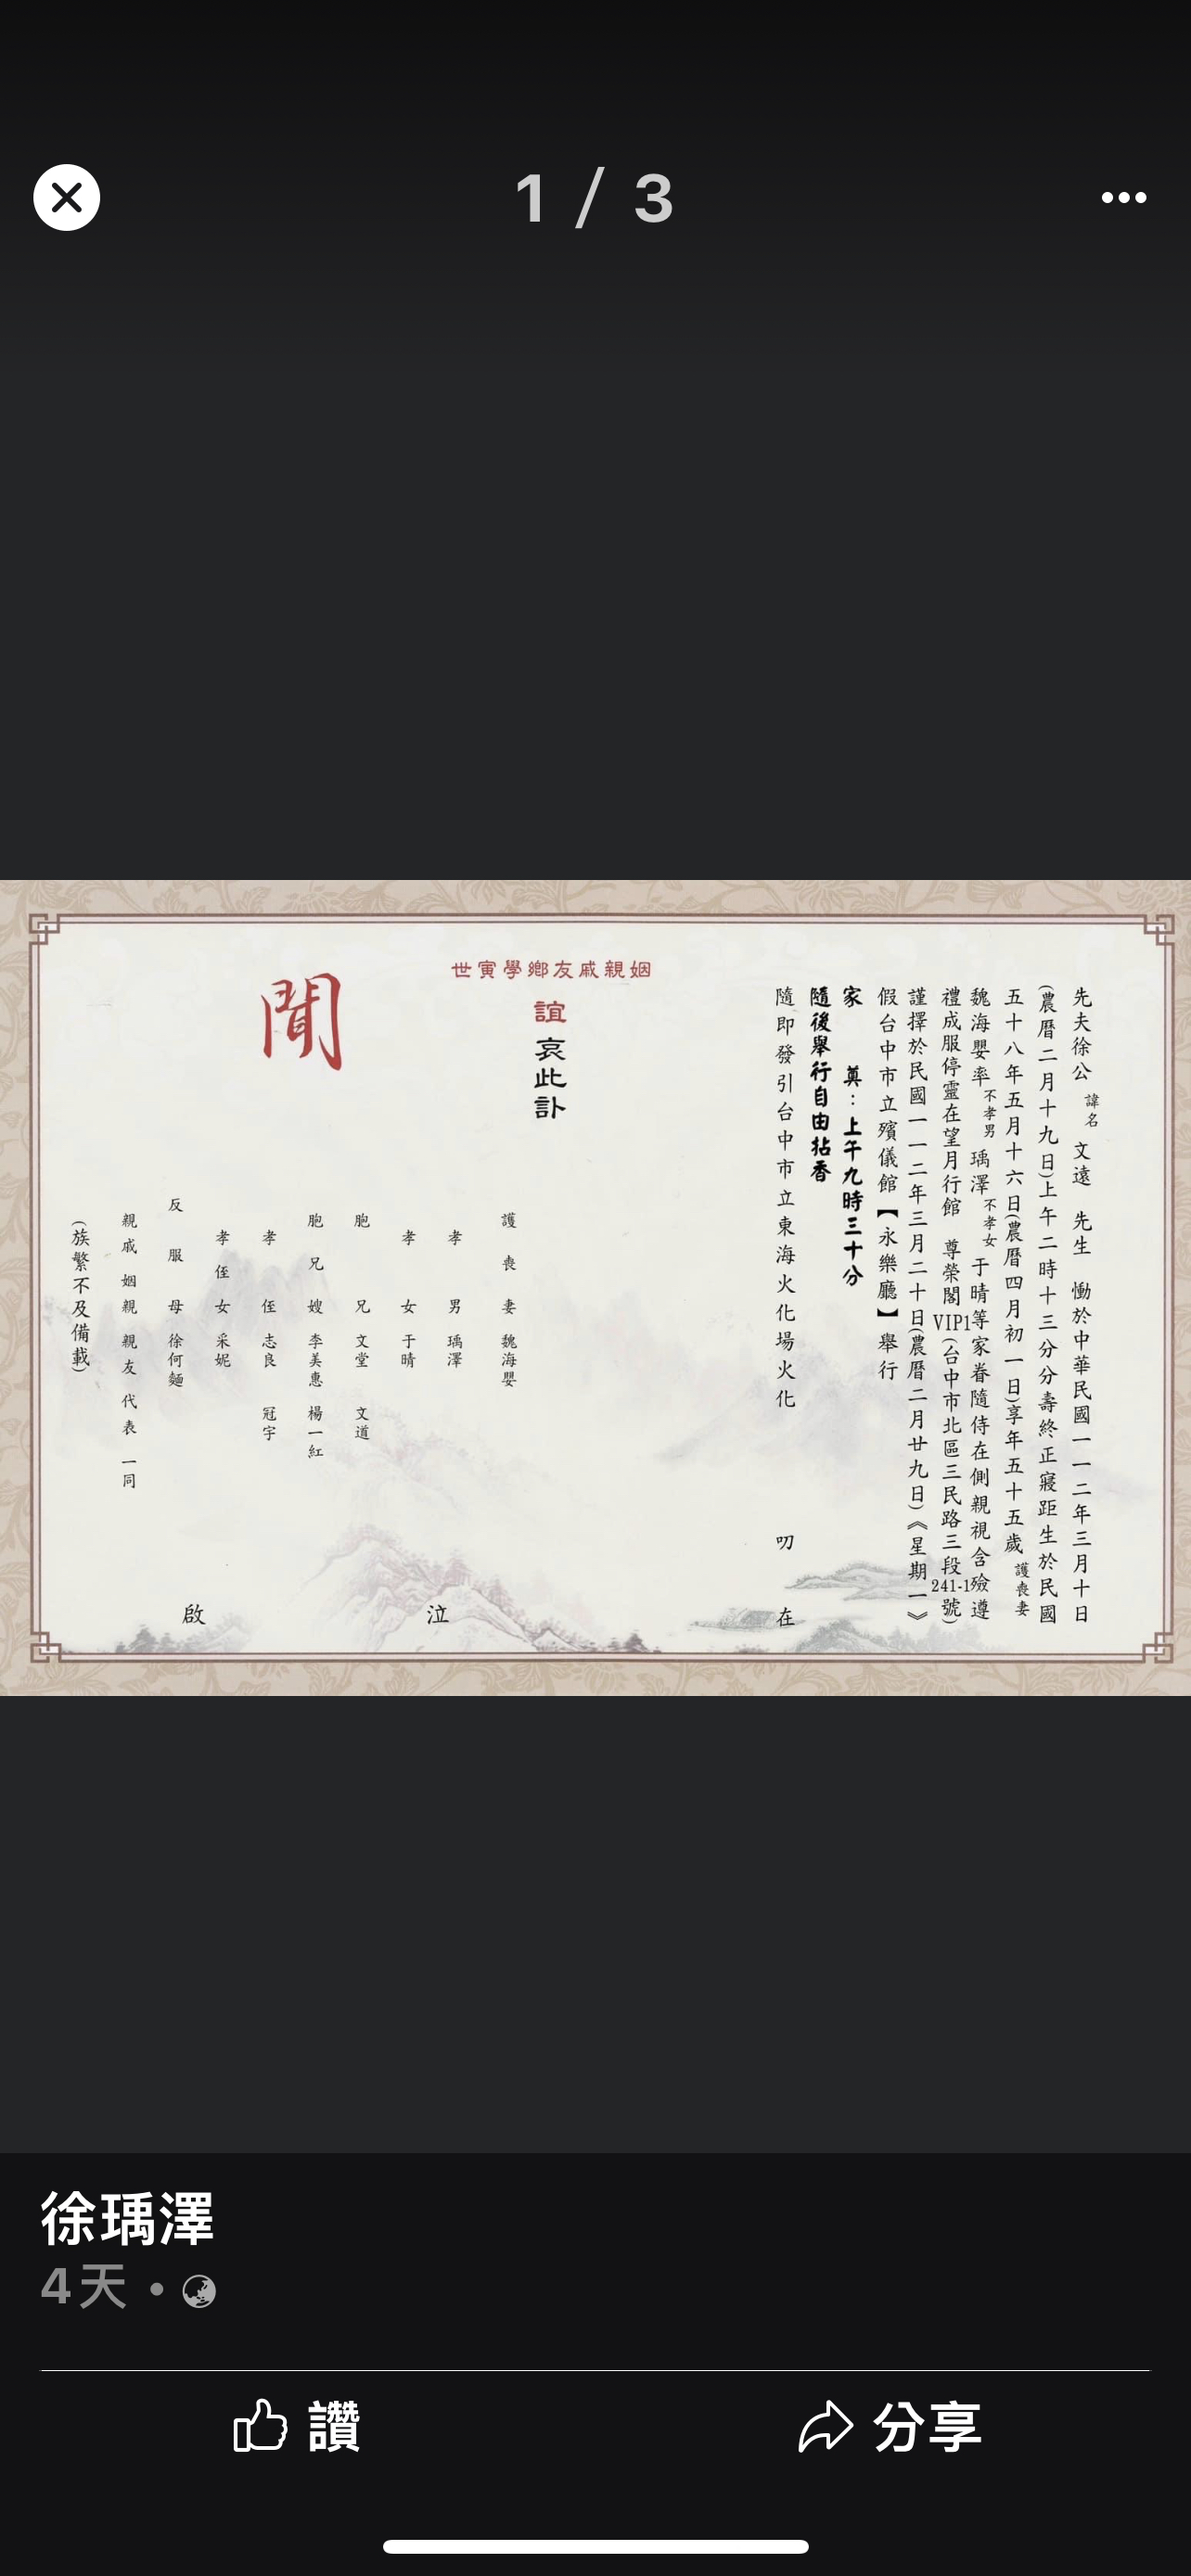 1 / 3
先夫徐公諱名文遠 先生 慟於中華民國一一二年三月十日
(農曆二月十九日)上午二時十三分分壽終正寢距生於民國
五十八年五月十六日(農曆四月初一日)享年五十五歲護喪妻
魏海嬰率不孝男瑀澤不孝女于晴等家眷隨侍在側親視含殮遵
禮成服停靈在望月行館 尊榮閣VIP1(台中市北區三民路三段241-1號)
謹擇於民國一一二年三月二十日(農曆二月廿九日)《星期一》
假台中市立殯儀館【永樂廳】舉行
家 奠:上午九時三十分
隨後舉行自由拈香
隨即發引台中市立東海火化場火化
叨 在
世寅學鄉友戚親姻
誼哀此訃
聞
護喪妻 魏海嬰
孝男 瑀澤
孝女 于晴
胞兄 文堂 文道
胞兄嫂 李美惠 楊一紅
孝侄 志良 冠宇
孝侄女 采妮
反服母 徐何麵
親戚姻親親友代表一同
(族繁不及備載)
泣 啟
徐瑀澤
4天 •
讚 分享